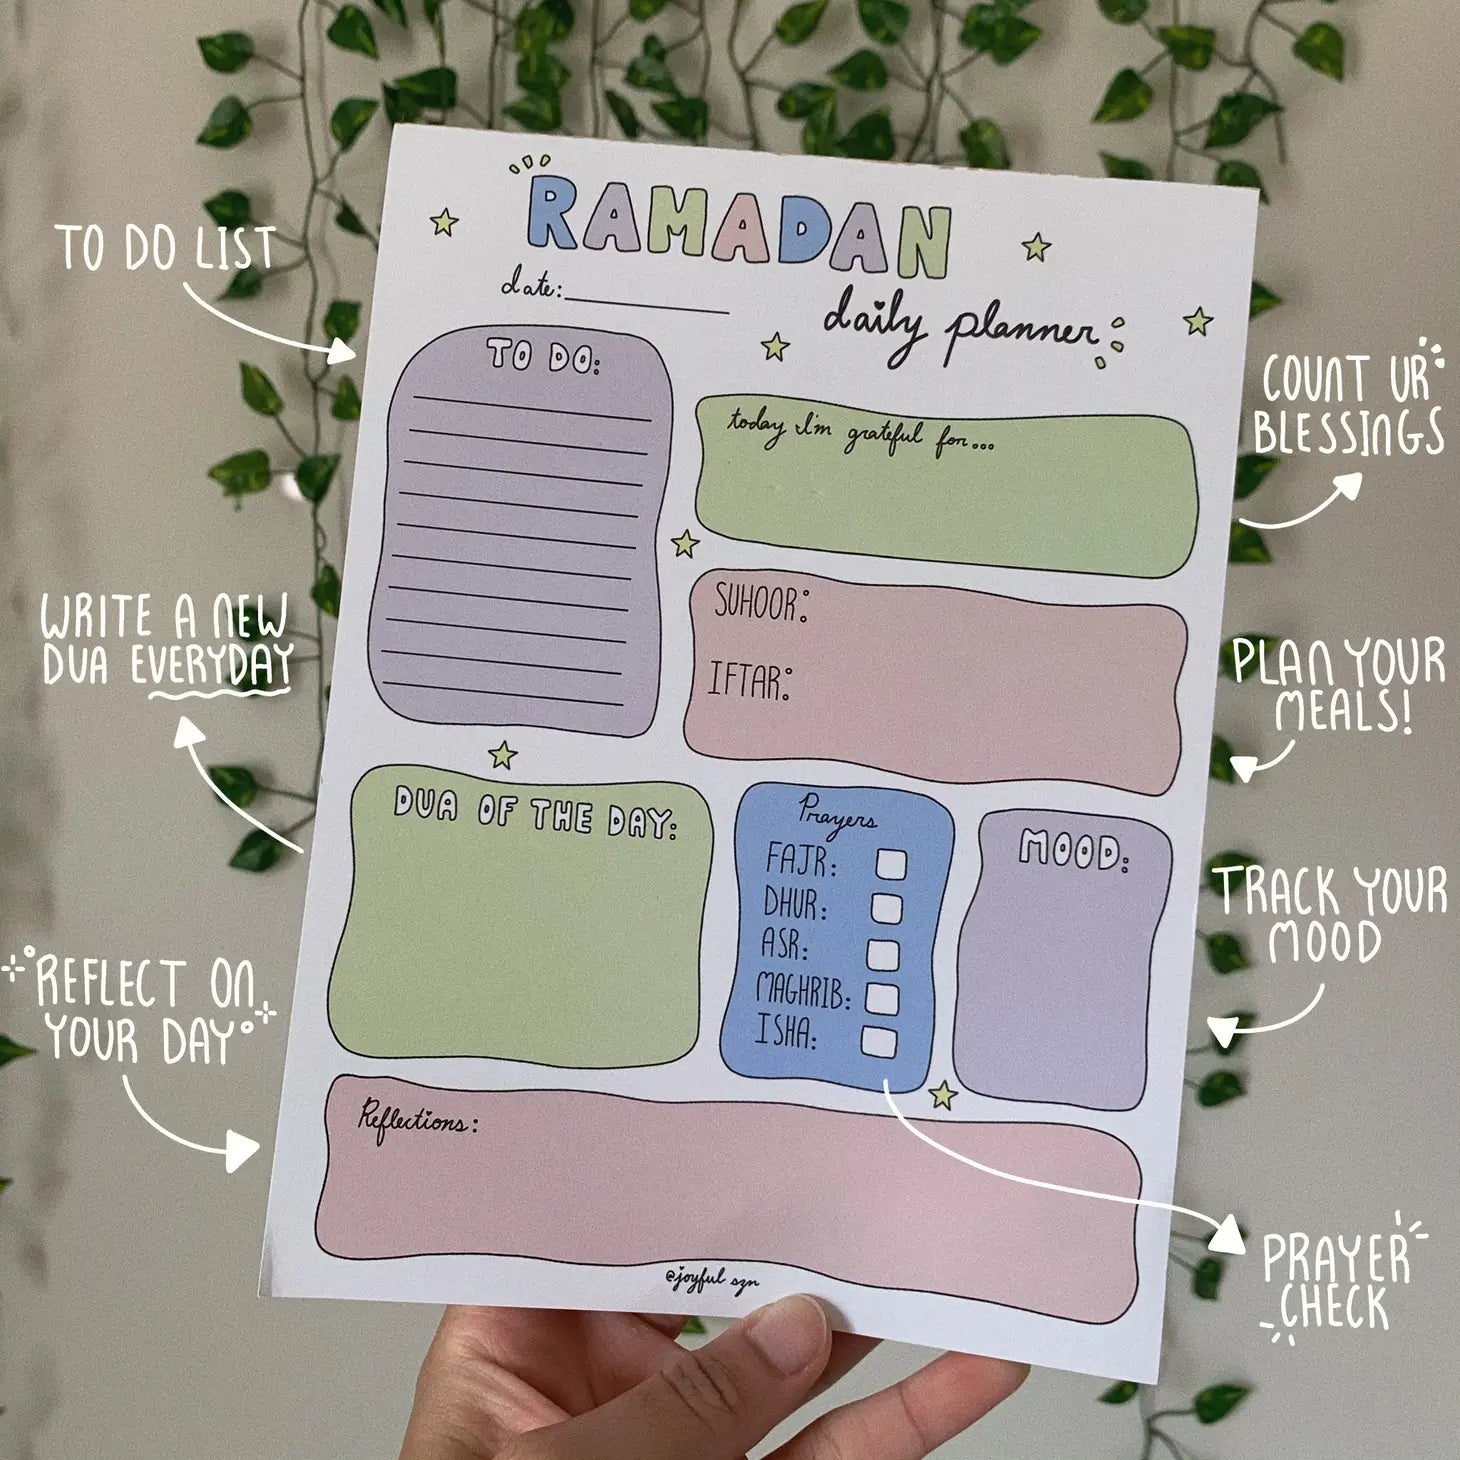 RAMADAN
date:
daily planner
TO DO LIST
TO DO:
COUNT UR
BLESSINGS
today I'm grateful for...
WRITE A NEW
DUA EVERYDAY
SUHOOR:
IFTAR:
PLAN YOUR
MEALS!
DUA OF THE DAY:
Prayers
FAJR:
DHUR:
ASR:
MAGHRIB:
ISHA:
MOOD:
TRACK YOUR
MOOD
REFLECT ON
YOUR DAY
Reflections:
PRAYER
CHECK
@joyful szn